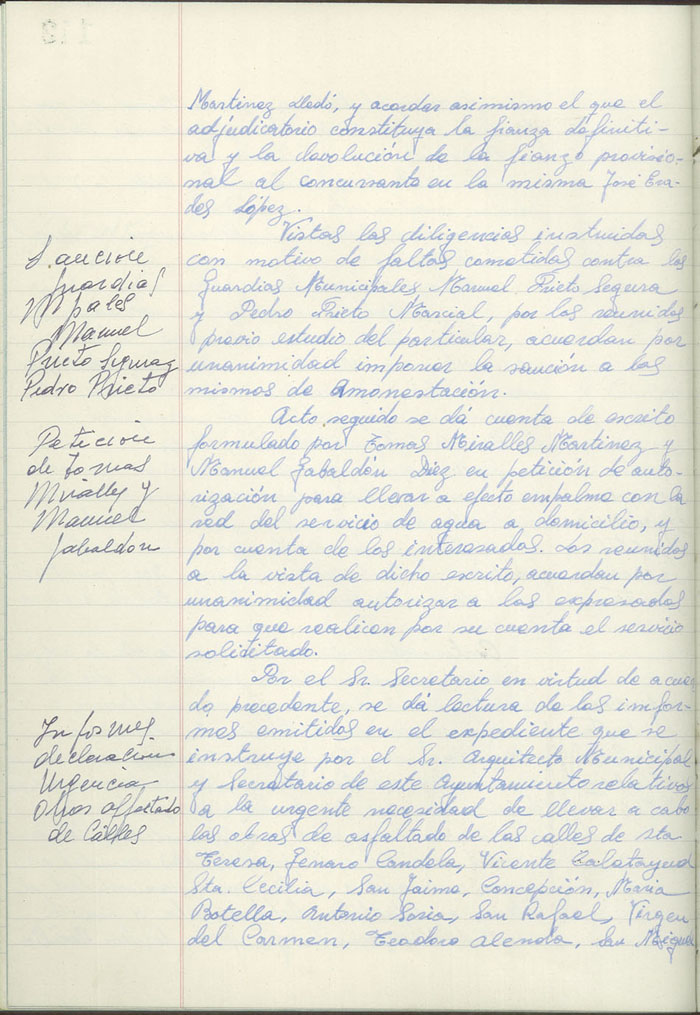 Martinez Lledó, y acordar asimismo el que el
adjudicatorio constituya la fianza definiti-
va y la devolución de la fianza provisio-
nal al concursante en la misma José
López.
Vistas las diligencias instruidas
con motivo de faltas cometidas contra los
Guardias Municipales Manuel Prieto Segura
y Pedro Prieto Marcial, por los reunidos
previo estudio del particular, acuerdan por
unanimidad imponer la sanción a los
mismos de Amonestación.
Sanción
guardias
Mpales
Manuel
Prieto Segura y
Pedro Prieto
Acto seguido se dá cuenta de escrito
formulado por Tomas Miralles Martinez y
Manuel Gabaldón Diez en petición de auto-
rización para llevar a efecto empalme con la
red del servicio de agua a domicilio, y
por cuenta de los interesados. Los reunidos
a la vista de dicho escrito, acuerdan por
unanimidad autorizar a los expresados
para que realicen por su cuenta el servicio
solicitado.
Petición
de Tomas
Miralles y
Manuel
Gabaldón
Por el Sr. Secretario en virtud de acuer
do precedente, se dá lectura de los infor-
mes emitidos en el expediente que se
instruye por el Sr. Arquitecto Municipal
y Secretario de este Ayuntamiento relativos
a la urgente necesidad de llevar a cabo
las obras de asfaltado de las calles de Sta
Teresa, Genaro Candela, Vicente Calatayud
Sta. Cecilia, San Jaime, Concepción, Maria
Botella, Antonio Soria, San Rafael, Virgen
del Carmen, Teodoro Alenda, San Miguel
Informes
declaración
Urgencia
Obras asfaltado
de Calles